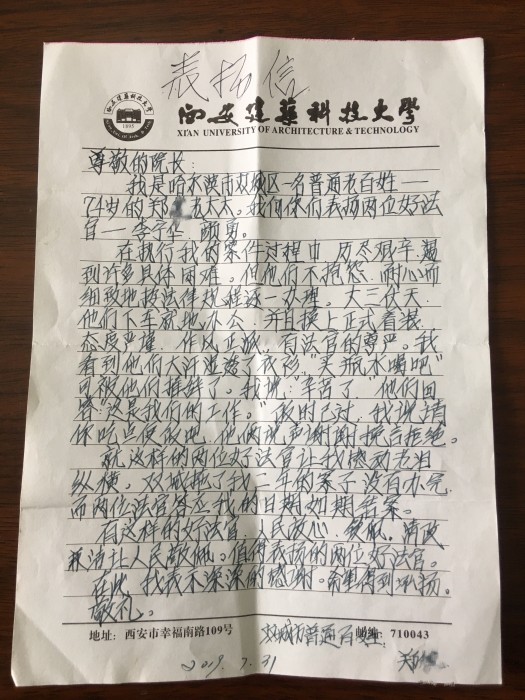 表扬信
西安建筑科技大学
1895
XI'AN UNIVERSITY OF ARCHITECTURE & TECHNOLOGY
尊敬的院长：
我是哈尔滨市双城区一名普通老百姓——
74岁的郑 老太太。我向你们表扬两位好法
官——李宁华 顾勇。
在执行我的案件过程中，历尽艰辛，遇
到许多具体困难。但他们不抱怨，耐心而
细致地按法律规程逐一办理。大三伏天，
他们下车就地办公，并且换上正式着装，
态度严谨，作风正派，有法官的尊严。我
看到他们大汗湿透了衣衫，"买瓶水喝吧"
可被他们推辞了。我说："辛苦了"，他们回
答"这是我们的工作。" 饭时已过，我说请
你吃点便饭吧，他俩说声谢谢，婉言拒绝。
就这样的两位好法官让我感动老泪
纵横。双城拖了我二年的案子没有办完，
而两位法官答应我的日期如期结案。
有这样的好法官，人民放心，清政
廉洁让人民敬佩。值得表扬的两位好法官。
在此，我表示深深的感谢。希望得到表扬。
敬礼。
地址：西安市幸福南路109号
双城市普通百姓： 邮编：710043
郑
2019.7.31